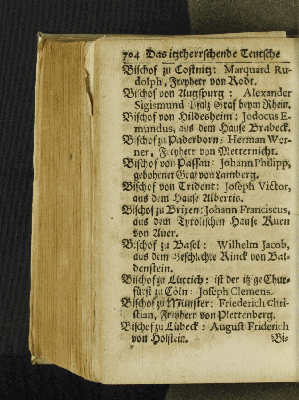 704 Das itztherrschende Teutsche
Bischof zu Costnitz: Marquard Ru-
dolph, Freyherr von Rodt.
Bischof von Augspurg: Alexander
Sigismund Pfaltz Graf beym Rhein.
Bischof von Hildesheim: Jodocus E-
mundus, aus dem Hause Brabeck.
Bischof zu Paderborn: Herman Wer-
ner, Freyherr von Metternicht.
Bischof von Passau: Johann Philipp,
gebohrner Graf von Lamberg.
Bischof von Trident: Joseph Victor,
aus dem Hause Albertis.
Bischof zu Brixen: Johann Franciscus,
aus dem Tyrolischen Hause Kuen
von Auer.
Bischof zu Basel: Wilhelm Jacob,
aus dem Geschlechte Rinck von Bal-
denstein.
Bischof zu Lüttich: ist der itzige Chur-
fürst zu Cöln: Joseph Clemens.
Bischof zu Münster: Friederich Chri-
stian, Freyherr von Plettenberg.
Bischof zu Lübeck: August Friderich
von Holstein. Bi-